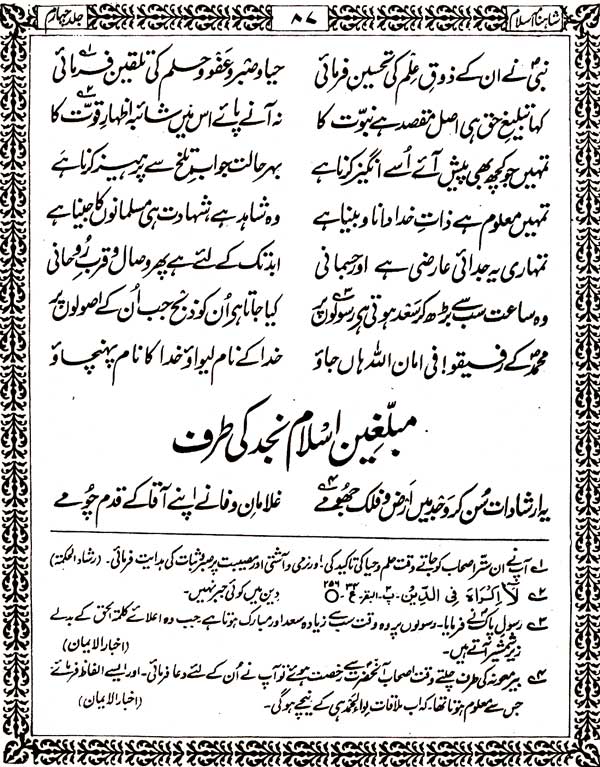 شاہنامہ اسلام ۸۷ جلد چہارم
نبیؐ نے ان کے ذوقِ علم کی تحسین فرمائی حیا و صبر و عفو و حلم کی تلقین فرمائی ۱
کہا تبلیغِ حق ہی اصل مقصد ہے نبوت کا نہ آنے پائے اس میں شائبہ اظہارِ قوت کا ۲
تمہیں جو کچھ بھی پیش آئے اُسے انگیز کرنا ہے بہر حالت جوابِ تلخ سے پرہیز کرنا ہے
تمہیں معلوم ہے ذاتِ خدا دانا و بینا ہے وہ شاہد ہے شہادت ہی مسلمانوں کا جینا ہے
تمہاری یہ جدائی عارضی ہے اور جسمانی ابد تک کے لئے ہے پھر وصال و قربِ رُوحانی
وہ ساعت سب سے بڑھ کر سَعد ہوتی ہے رسولوں پر ۳ کیا جاتا ہے اُن کو ذبح جب اُن کے اصولوں پر
محمدؐ کے رفیقو! فی امان اللہ ہاں جاؤ خدا کے نام لیواؤ خدا کا نام پہنچاؤ
مبلّغینِ اسلام نجد کی طرف
یہ ارشادات سُن کر وَجد میں اَرض و فلک جھومے ۴ غلامانِ وفا نے اپنے آقا کے قدم چُومے
۱ آپؐ نے ان ستّر اصحاب کو جاتے وقت علم و حیا کی تاکید کی! اور نرمی و آشتی اور مصیبت پر صبر و ثبات کی ہدایت فرمائی۔ (رشاد الحکمۃ)
۲ لَآ اِکْرَاہَ فِی الدِّیْنِ۔ پ۔ البقر۔ ع ۳۴ ۲۵۶ دین میں کوئی جبر نہیں۔
۳ رسولِ پاکؐ نے فرمایا۔ رسولوں پر وہ وقت سب سے زیادہ سعد اور مبارک ہوتا ہے جب وہ اعلائے کلمۃ الحق کے بدلے
زیرِ شمشیر آتے ہیں۔ (اخبار الایمان)
۴ بیرِ معونہ کی طرف چلتے وقت اصحاب آنحضورؐ سے رخصت ہوئے تو آپ نے اُن کے لئے دعا فرمائی۔ اور ایسے الفاظ فرمائے
جس سے معلوم ہوتا تھا۔ کہ اب ملاقات لواء الحمد ہی کے نیچے ہوگی۔ (اخبار الایمان)